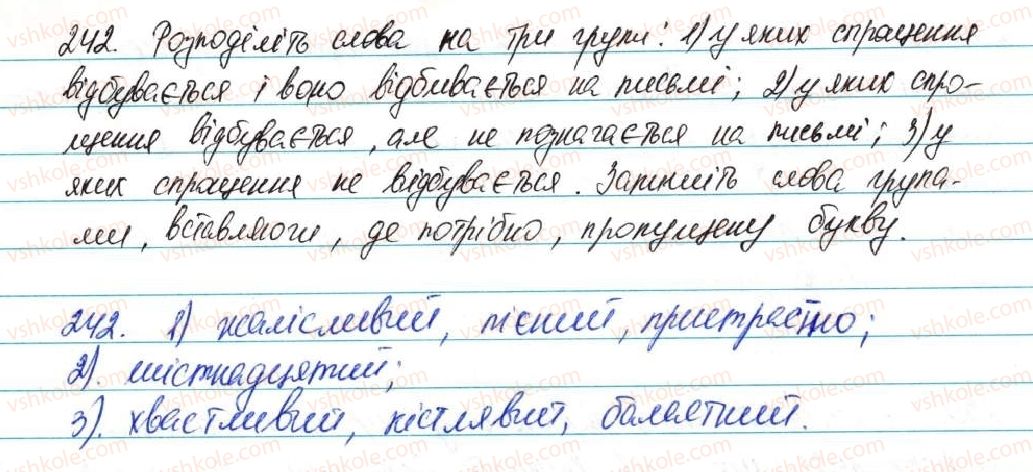 242. Розподіліть слова на три групи: 1) у яких спрощення
відбувається і воно відбивається на письмі; 2) у яких спро-
щення відбувається, але не позначається на письмі; 3) у
яких спрощення не відбувається. Запишіть слова група-
ми, вставляючи, де потрібно, пропущену букву.
242. 1) жалісливий, тісний, пристрастно;
2). шістнадцятий;
3). хвастливий, кістлявий, баластний.